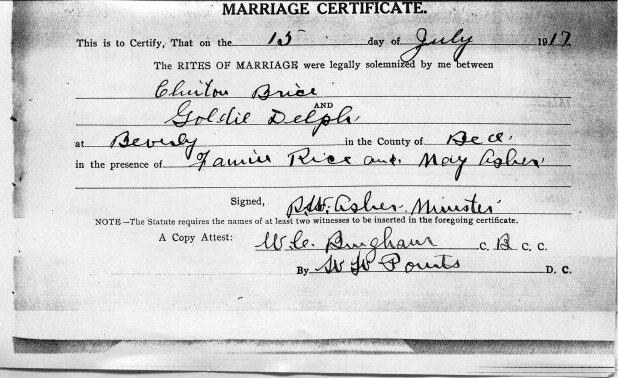 MARRIAGE CERTIFICATE.
This is to Certify, That on the 15 day of July 1917
The RITES OF MARRIAGE were legally solemnized by me between
Clinton Brice
AND
Goldie Delph
at Beverly in the County of Bell
in the presence of Fannie Rice and May Asher
Signed, R.W. Asher, Minister
NOTE—The Statute requires the names of at least two witnesses to be inserted in the foregoing certificate.
A Copy Attest: W.C. Bingham C. B C. C.
By W W Pounts D. C.